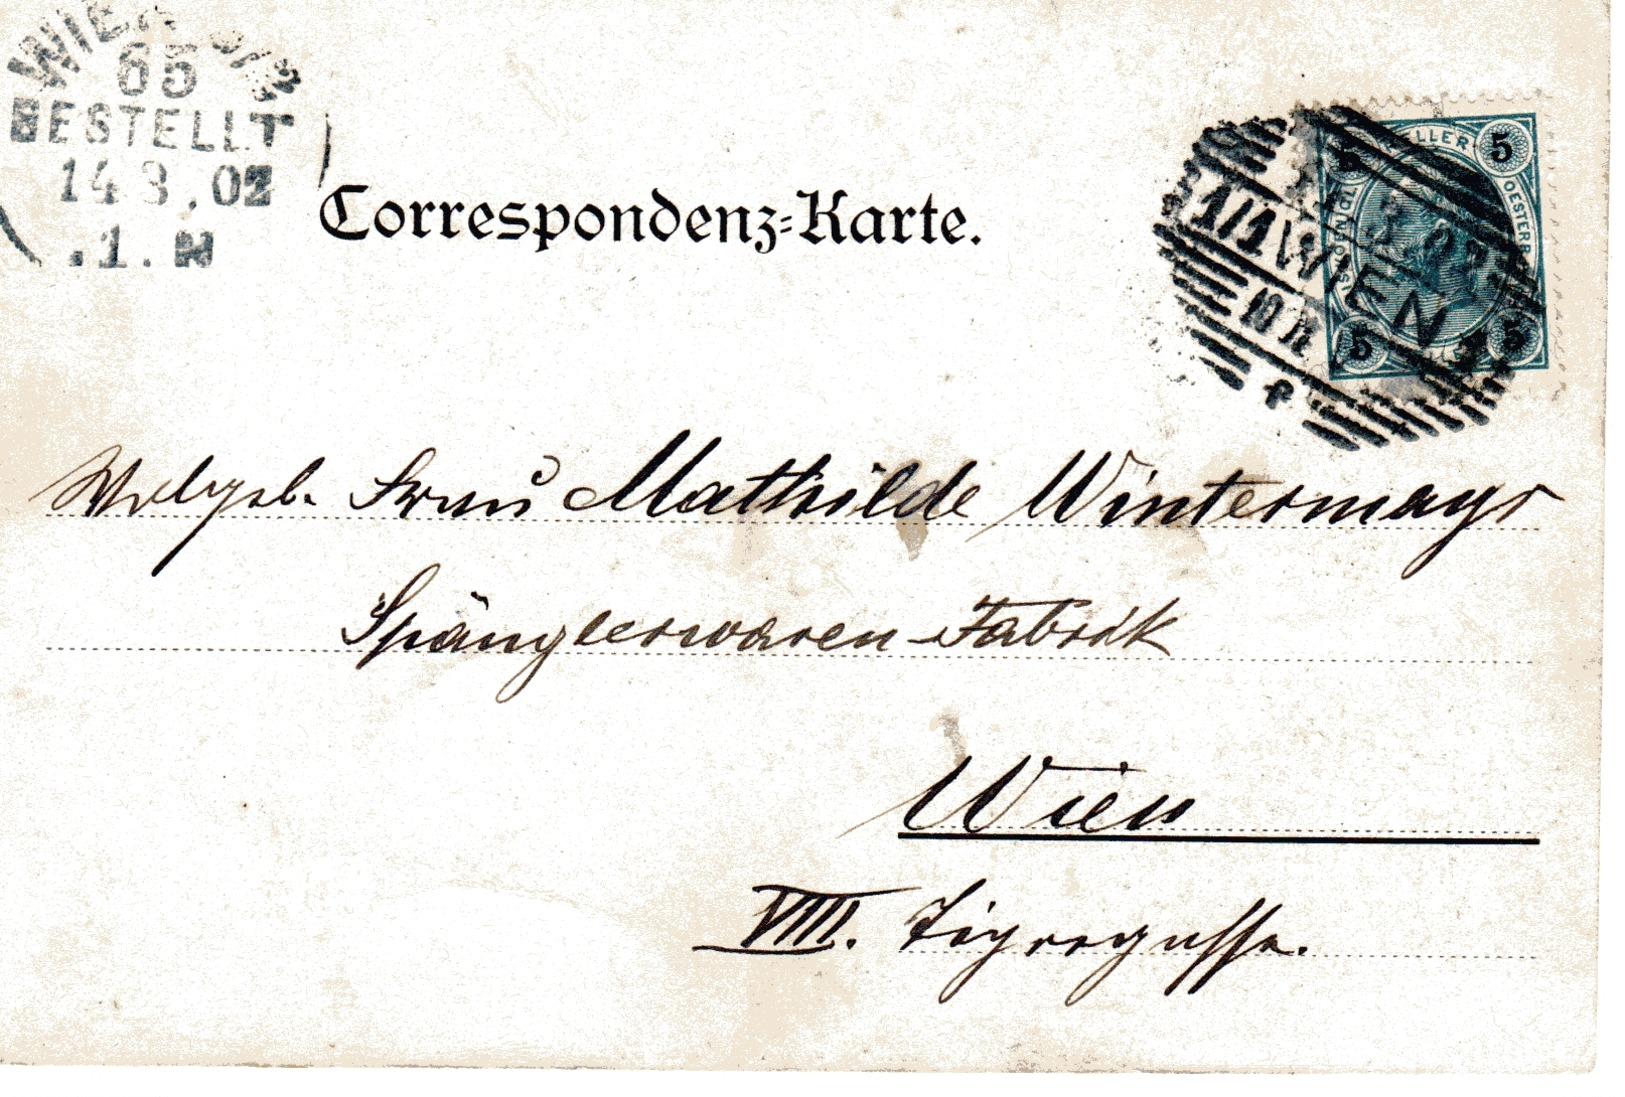 WIEN
65
BESTELLT
14.3.02
.1.N
Correspondenz-Karte.
5 HELLER 5
OESTERR.
1/1 WIEN
3 02
10
5 5
Wolgeb. Frau Mathilde Wintermayr
Spänglerwaren-Fabrik
Wien
VIII.